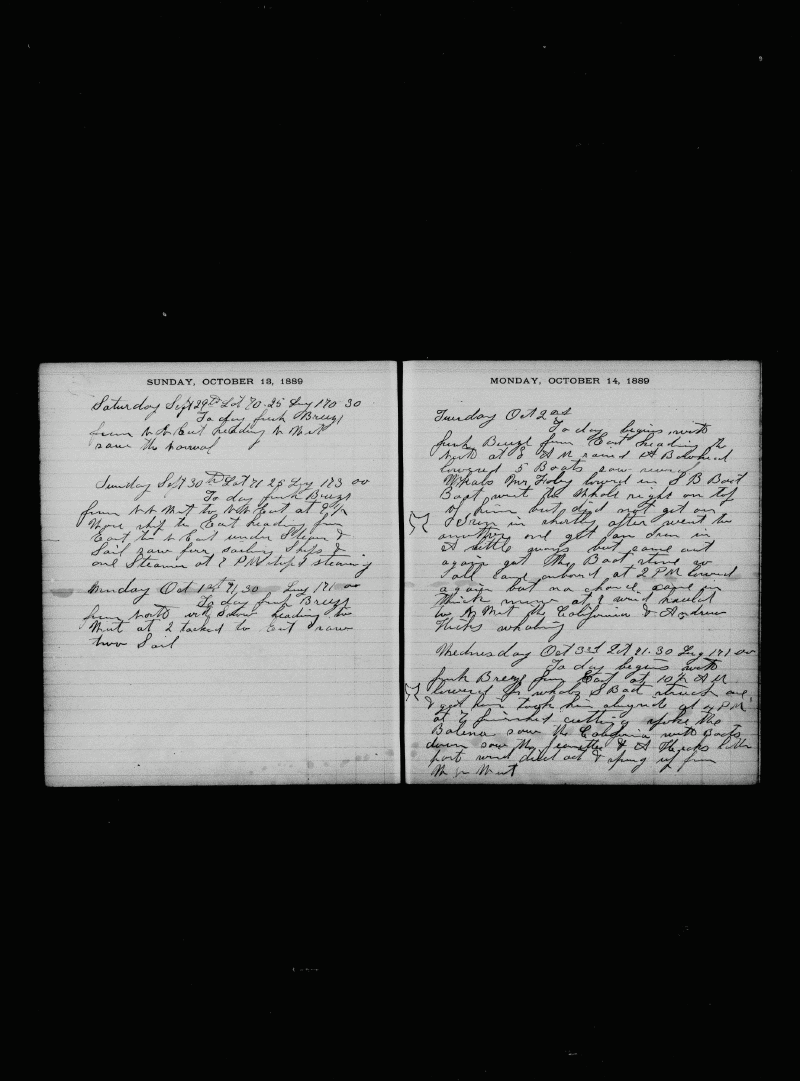 SUNDAY, OCTOBER 13, 1889
Saturday Sept 29th Lat 70.25 Lng 170 30
To day fresh Breeze
from N N East heading N West
saw the Norwal
Sunday Sept 30th Lat 71 25 Lng 173 00
To day fresh Breeze
from N N West to N N East at
ship to East heading from
East to N East under Steam &
Sail saw four sailing Ships &
one Steamer at 7 PM stopt steaming
Munday Oct 1st 71,30 Lng 171 00
To day fresh Breeze
from North with Snow heading to
West at 2 tacked to East saw
two Sail
MONDAY, OCTOBER 14, 1889
Tuesday Oct 2nd
To day begins with
fresh Breeze from East heading to
North at 8 A M raised A Bowhead
lowered 5 Boats saw
Whals Mr Foley lowed in S B Boat
Boat went the Whale right on top
of him but did not get on
in shortly after went to
another one got an Iron in
A little but came out
again got the Boat stove so
call and onbord at 2 PM lowed
again but no chance came in
thick at wind hauled
to N West the California & Andrew
Hicks whaling
Wednesday Oct 3rd Lat 71.30 Lng 171 00
To day begins with
fresh Breeze from East at 10 A M
lowered for whals S Boat struck one
& got him took him alongside at 4 PM
at 7 finished cutting spoke the
Balena saw the California with Boats
down saw the & A Hicks both
wind died out & spring up from
West